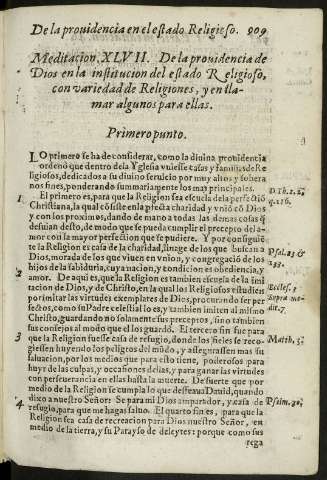 De la prouidencia en el estado Religioso. 909
Meditacion XLVII. De la prouidencia de
Dios en la institucion del estado Religioso,
con variedad de Religiones, y en lla-
mar algunos para ellas.
Primero punto.
LO primero se ha de considerar, como la diuina prouidencia
ordenò que dentro de la Yglesia vuiesse casas y familias de Re
ligiosos, dedicados a su diuino seruicio por muy altos y sobera
nos fines, ponderando summariamente los mas principales. D. Th. 2. 2.
1 El primero es, para que la Religion sea escuela de la perfectiõ q. 186.
Christiana, la qual cõsiste en la pfecta charidad, y vniõ cõ Dios
y con los proximos, dando de mano a todas las demas cosas q̃
desuian desto, de modo que se pueda cumplir el precepto del a-
mor con la mayor perfection que se pudiere. Y por consiguiẽ
te la Religion es casa de la charidad, image de los que buscan a
Dios, morada de los que viuen en vnion, y congregació de los Psal. 23 &
hijos de la sabiduria, cuya nacion, y condicion es obediencia, y 132.
2 amor. De aqui es, que la Religion es tambien escuela de la imi Eccles. 3
tacion de Dios, y de Christo, en la qual los Religiosos estudiẽ Supra me-
por imitar las virtudes exemplares de Dios, procurando ser per dit. 7.
fectos, como su Padre celestial lo es, y tambien imiten al mismo
Christo, guardando no solamente sus preceptos, sino tambien
sus consejos al modo que el los guardó. El tercero fin fue para
3 que la Religion fuesse casa de refugio, donde los fieles se reco- Matth. 5.
giessen huyendo los peligros del mũdo, y assegurassen mas su
saluacion, por los medios que para esto tiene, poderosos para
huyr de las culpas, y occasiones dellas, y para ganar las virtudes
con perseuerancia en ellas hasta la muerte. De suerte que por
medio de la Religion se cumpla lo que desseaua Dauid, quando
dixo a nuestro Señor: Se para mi Dios amparador, y casa de Psalm. 30.
4 refugio, para que me hagas saluo. El quarto fin es, para que la
Religion sea casa de recreacion para Dios nuestro Señor, en
medio de la tierra, y su Parayso de deleytes: porque como sus
rega